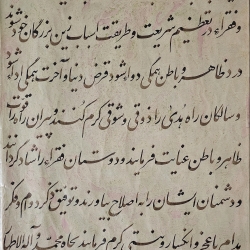 وفقراء در تعظیم شریعت و طریقت اسباب زین بزرگان خوشنود شوند
در ظاهر و باطن همگی دوا شود قرض دنیا و آخرت همگی ادا شود
و سالکان راه هدی را ذوقی و شوقی کرم کنند و پیران راه قوت
ظاهر و باطن عنایت فرمایند و دوستان فقراء را شاد گردانند
و دشمنان ایشان را به اصلاح بیاورند و توفیق ذکر دوام و فکر
مدام با عجز و انکسار و نیستی کرم فرمایند بجاه محمد و آله الاطهار